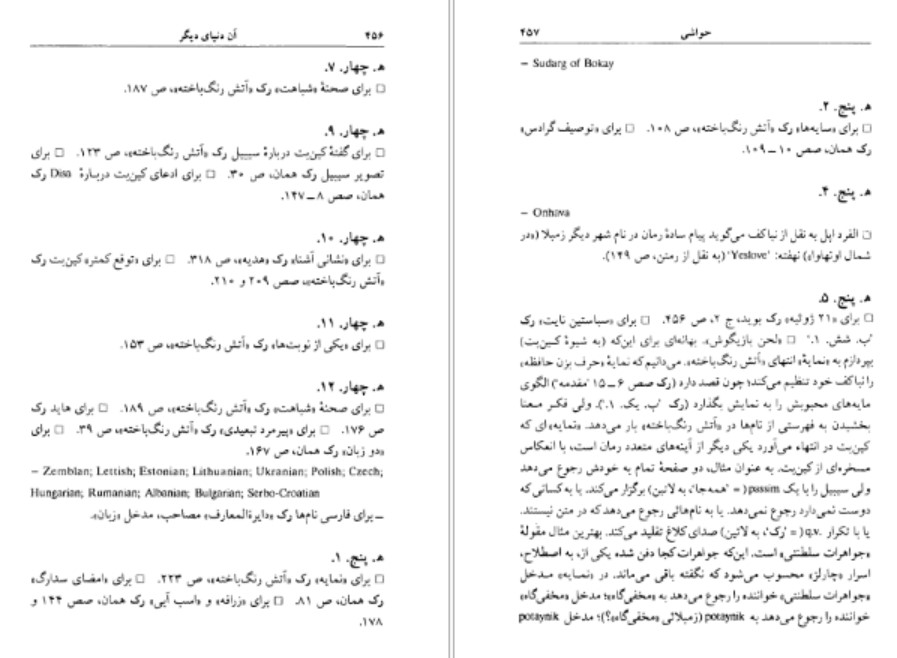 ۴۵۶ آن دنیای دیگر
ه‍. چهار. ۷.
□ برای صحنهٔ «شباهت» رک «آتش رنگ‌باخته»، ص ۱۸۷.
ه‍. چهار. ۹.
□ برای گفتهٔ کین‌بت دربارهٔ سیبیل رک «آتش رنگ‌باخته»، ص ۱۲۳. □ برای
تصویر سیبیل رک همان، ص ۳۰. □ برای ادعای کین‌بت دربارهٔ Disa رک
همان، صص ۸ــ۱۴۷.
ه‍. چهار. ۱۰.
□ برای «نشانی آشنا» رک «هدیه»، ص ۳۱۸. □ برای «توقع کمتر» کین‌بت رک
«آتش رنگ‌باخته»، صص ۲۰۹ و ۲۱۰.
ه‍. چهار. ۱۱.
□ برای «یکی از نوبت‌ها» رک «آتش رنگ‌باخته»، ص ۱۵۳.
ه‍. چهار. ۱۲.
□ برای صحنهٔ «شباهت» رک «آتش رنگ‌باخته»، ص ۱۸۹. □ برای هاید رک
ص ۱۷۶. □ برای «پیرمرد تبعیدی» رک «آتش رنگ‌باخته»، ص ۳۹. □ برای
«دو زبان» رک همان، ص ۱۶۷.
– Zemblan; Lettish; Estonian; Lithuanian; Ukranian; Polish; Czech;
Hungarian; Rumanian; Albanian; Bulgarian; Serbo-Croatian
ــ برای فارسی نام‌ها رک «دایرةالمعارف» مصاحب، مدخل «زبان».
ه‍. پنج. ۱.
□ برای «نمایه» رک «آتش رنگ‌باخته»، ص ۲۲۳. □ برای «امضای سدارگ»
رک همان، ص ۸۱. □ برای «زرافه» و «اسب آبی» رک همان، صص ۱۴۴ و
۱۷۸.
حواشی ۴۵۷
– Sudarg of Bokay
ه‍. پنج. ۲.
□ برای «سایه‌ها» رک «آتش رنگ‌باخته»، ص ۱۰۸. □ برای «توصیف گرادس»
رک همان، صص ۱۰ــ۱۰۹.
ه‍. پنج. ۴.
– Onhava
□ الفرد اپل به نقل از نباکف می‌گوید پیام سادهٔ رمان در نام شهر دیگر زمبلا («در
شمال اونهاوا») نهفته: 'Yeslove' (به نقل از رمنن، ص ۱۴۹).
ه‍. پنج. ۵.
□ برای «۲۱ ژوئیه» رک بوید، ج ۲، ص ۴۵۶. □ برای «سباستین نایت» رک
'ب. شش. ۱.' □ «لحن بازیگوش». بهانه‌ای برای این‌که (به شیوهٔ کین‌بت)
بپردازم به «نمایهٔ» انتهای «آتش رنگ‌باخته». می‌دانیم که نمایهٔ «حرف بزن حافظه»
را نباکف خود تنظیم می‌کند؛ چون قصد دارد (رک صص ۶ــ۱۵ 'مقدمه') الگوی
مایه‌های محبوبش را به نمایش بگذارد (رک 'ب. یک. ۱.'). ولی فکر معنا
بخشیدن به فهرستی از نام‌ها در «آتش رنگ‌باخته» بار می‌دهد. «نمایه»ای که
کین‌بت در انتهاء می‌آورد یکی دیگر از آینه‌های متعدد رمان است، با انعکاس
مسخره‌ای از کین‌بت. به عنوان مثال، دو صفحهٔ تمام به خودش رجوع می‌دهد
ولی سیبیل را با یک passim (= 'همه‌جا'، به لاتین) برگزار می‌کند. یا به کسانی که
دوست نمی‌دارد رجوع نمی‌دهد. یا به نام‌هائی رجوع می‌دهد که در متن نیستند.
یا با تکرار q.v. (= 'رک'، به لاتین) صدای کلاغ تقلید می‌کند. بهترین مثال مقولهٔ
«جواهرات سلطنتی» است. این‌که جواهرات کجا دفن شده یکی از، به اصطلاح،
اسرار «چارلز» محسوب می‌شود که نگفته باقی می‌ماند. در «نمایه» مدخل
«جواهرات سلطنتی» خواننده را رجوع می‌دهد به «مخفی‌گاه»؛ مدخل «مخفی‌گاه»
خواننده را رجوع می‌دهد به potaynik (زمبلائی «مخفی‌گاه»؟)؛ مدخل potaynik